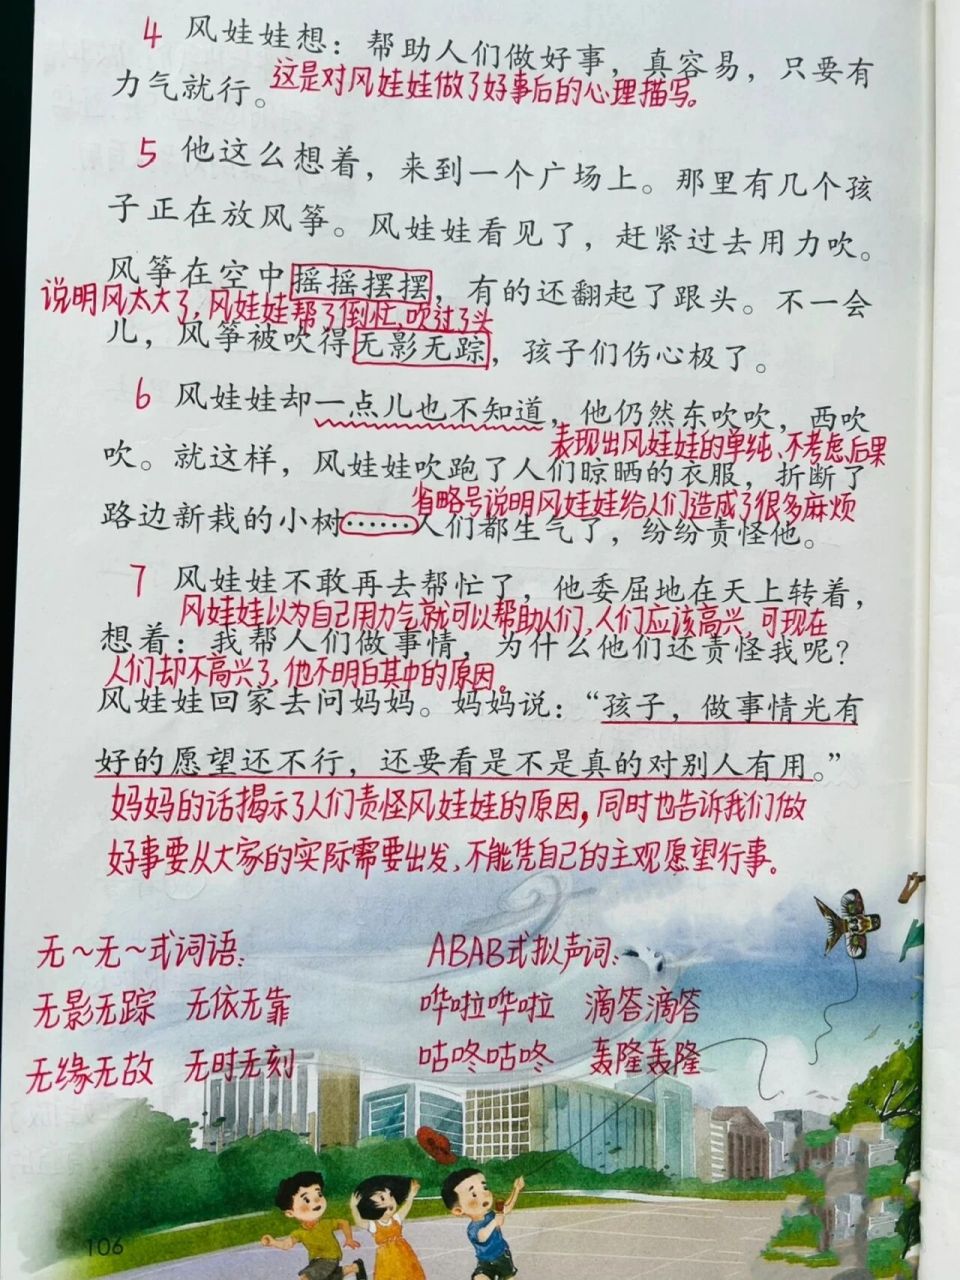 4 风娃娃想：帮助人们做好事，真容易，只要有
力气就行。
这是对风娃娃做了好事后的心理描写。
5 他这么想着，来到一个广场上。那里有几个孩
子正在放风筝。风娃娃看见了，赶紧过去用力吹。
风筝在空中摇摇摆摆，有的还翻起了跟头。不一会
说明风太大了，风娃娃帮了倒忙、吹过了头
儿，风筝被吹得无影无踪，孩子们伤心极了。
6 风娃娃却一点儿也不知道，他仍然东吹吹，西吹
表现出风娃娃的单纯、不考虑后果
吹。就这样，风娃娃吹跑了人们晾晒的衣服，折断了
省略号说明风娃娃给人们造成了很多麻烦
路边新栽的小树……人们都生气了，纷纷责怪他。
7 风娃娃不敢再去帮忙了，他委屈地在天上转着，
风娃娃以为自己用力气就可以帮助人们，人们应该高兴，可现在
想着：我帮人们做事情，为什么他们还责怪我呢？
人们却不高兴了，他不明白其中的原因。
风娃娃回家去问妈妈。妈妈说：“孩子，做事情光有
好的愿望还不行，还要看是不是真的对别人有用。”
妈妈的话揭示了人们责怪风娃娃的原因，同时也告诉我们做
好事要从大家的实际需要出发、不能凭自己的主观愿望行事。
无～无～式词语：
无影无踪 无依无靠
无缘无故 无时无刻
ABAB式拟声词：
哗啦哗啦 滴答滴答
咕咚咕咚 轰隆轰隆
106